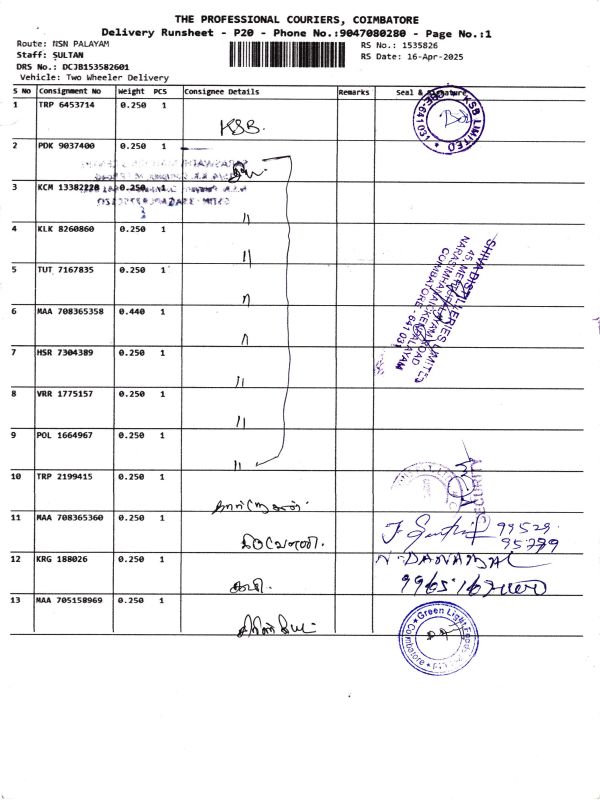 THE PROFESSIONAL COURIERS, COIMBATORE
Delivery Runsheet - P20 - Phone No.:9047080280 - Page No.:1
Route: NSN PALAYAM
RS No.: 1535826
Staff: SULTAN
RS Date: 16-Apr-2025
DRS No.: DCJB153582601
Vehicle: Two Wheeler Delivery
S No Consignment No Weight PCS Consignee Details Remarks Seal & Signature
1 TRP 6453714 0.250 1 KSB. KSB LIMITED
2 PDK 9037400 0.250 1
3 KCM 13382220 0.250 1 "
4 KLK 8260860 0.250 1 "
SHIVA DISTILLERIES LIMITED
NARASIMHANAICKENPALAYAM
COIMBATORE - 641 031
5 TUT 7167835 0.250 1 "
6 MAA 708365358 0.440 1 "
7 HSR 7304389 0.250 1 "
8 VRR 1775157 0.250 1 "
9 POL 1664967 0.250 1 "
10 TRP 2199415 0.250 1 SECURITY
11 MAA 708365360 0.250 1
12 KRG 188026 0.250 1
13 MAA 705158969 0.250 1 Green Light Foods
Coimbatore